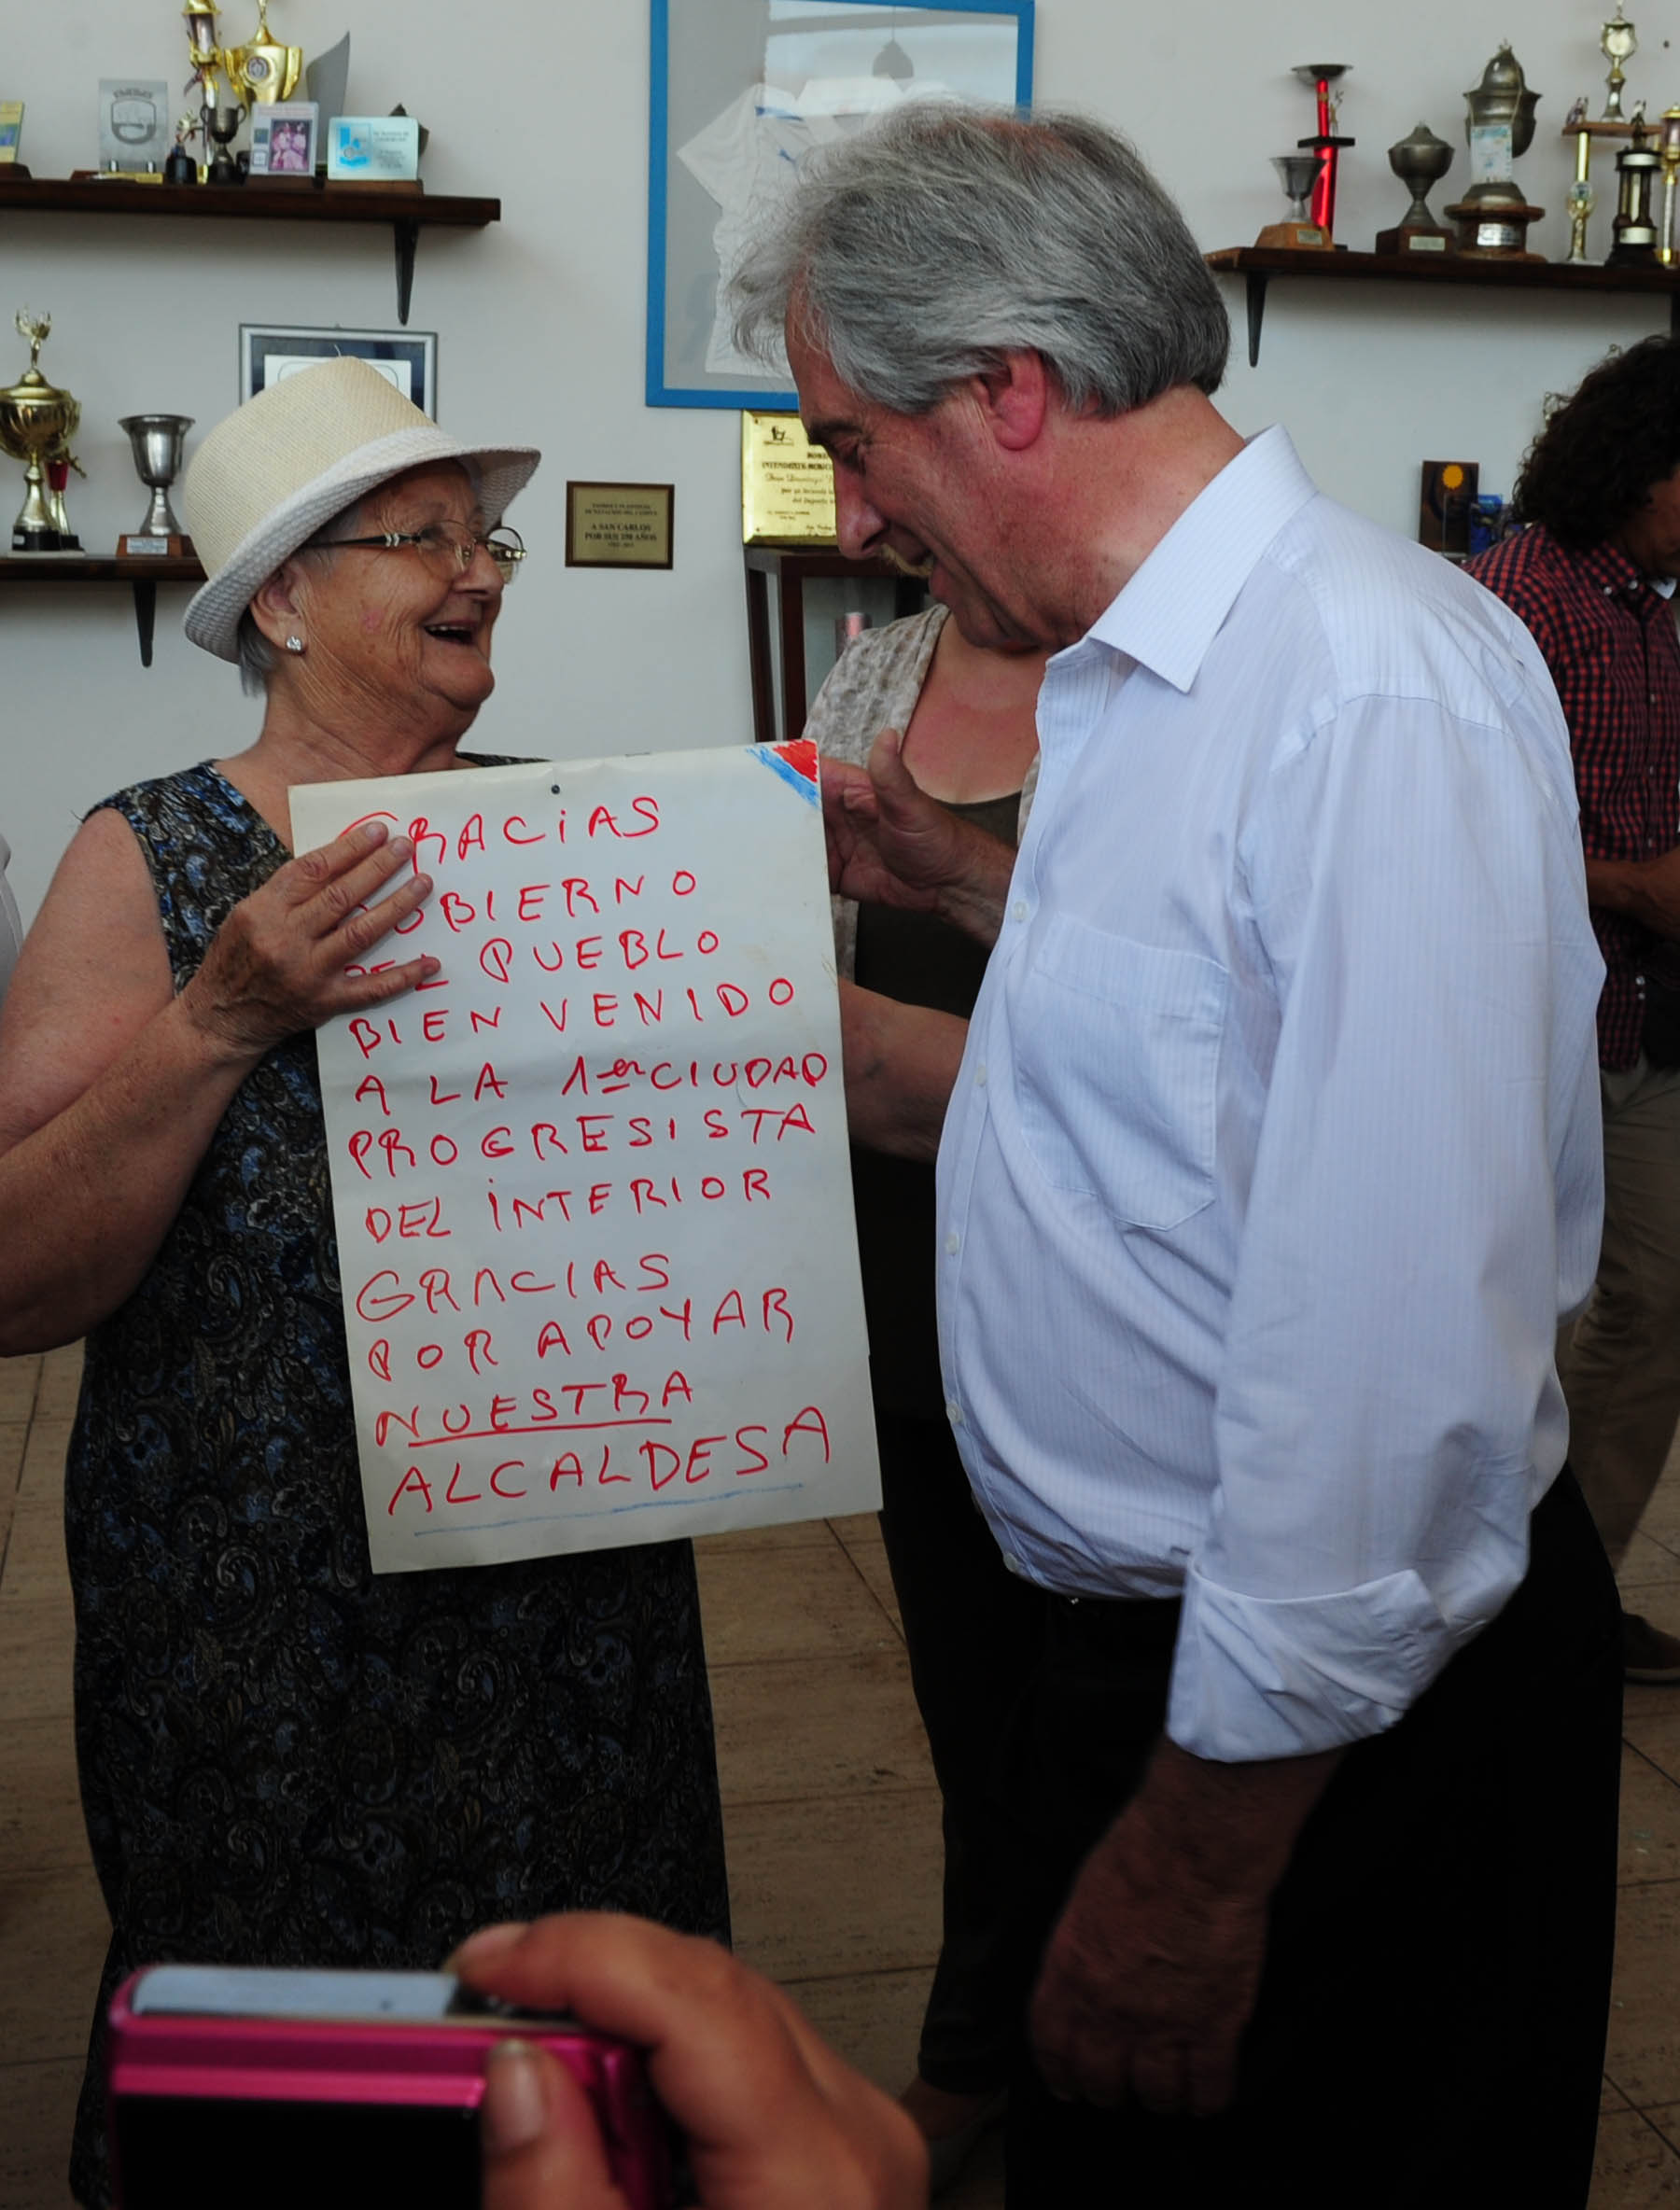 GRACIAS
GOBIERNO
DEL PUEBLO
BIEN VENIDO
A LA 1er CIUDAD
PROGRESISTA
DEL INTERIOR
GRACIAS
POR APOYAR
NUESTRA
ALCALDESA
A SAN CARLOS
POR SUS 250 AÑOS